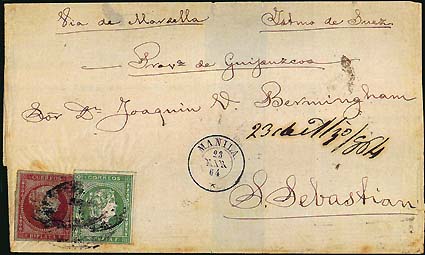 Via de Marsella Istmo de Suez
Provᵃ de Guipuzcoa
Sor Dn Joaquin V Bermingham
23 de Mzo/864
MANILA
23
MAR
64
S. Sebastian
CORREOS
CORREOS